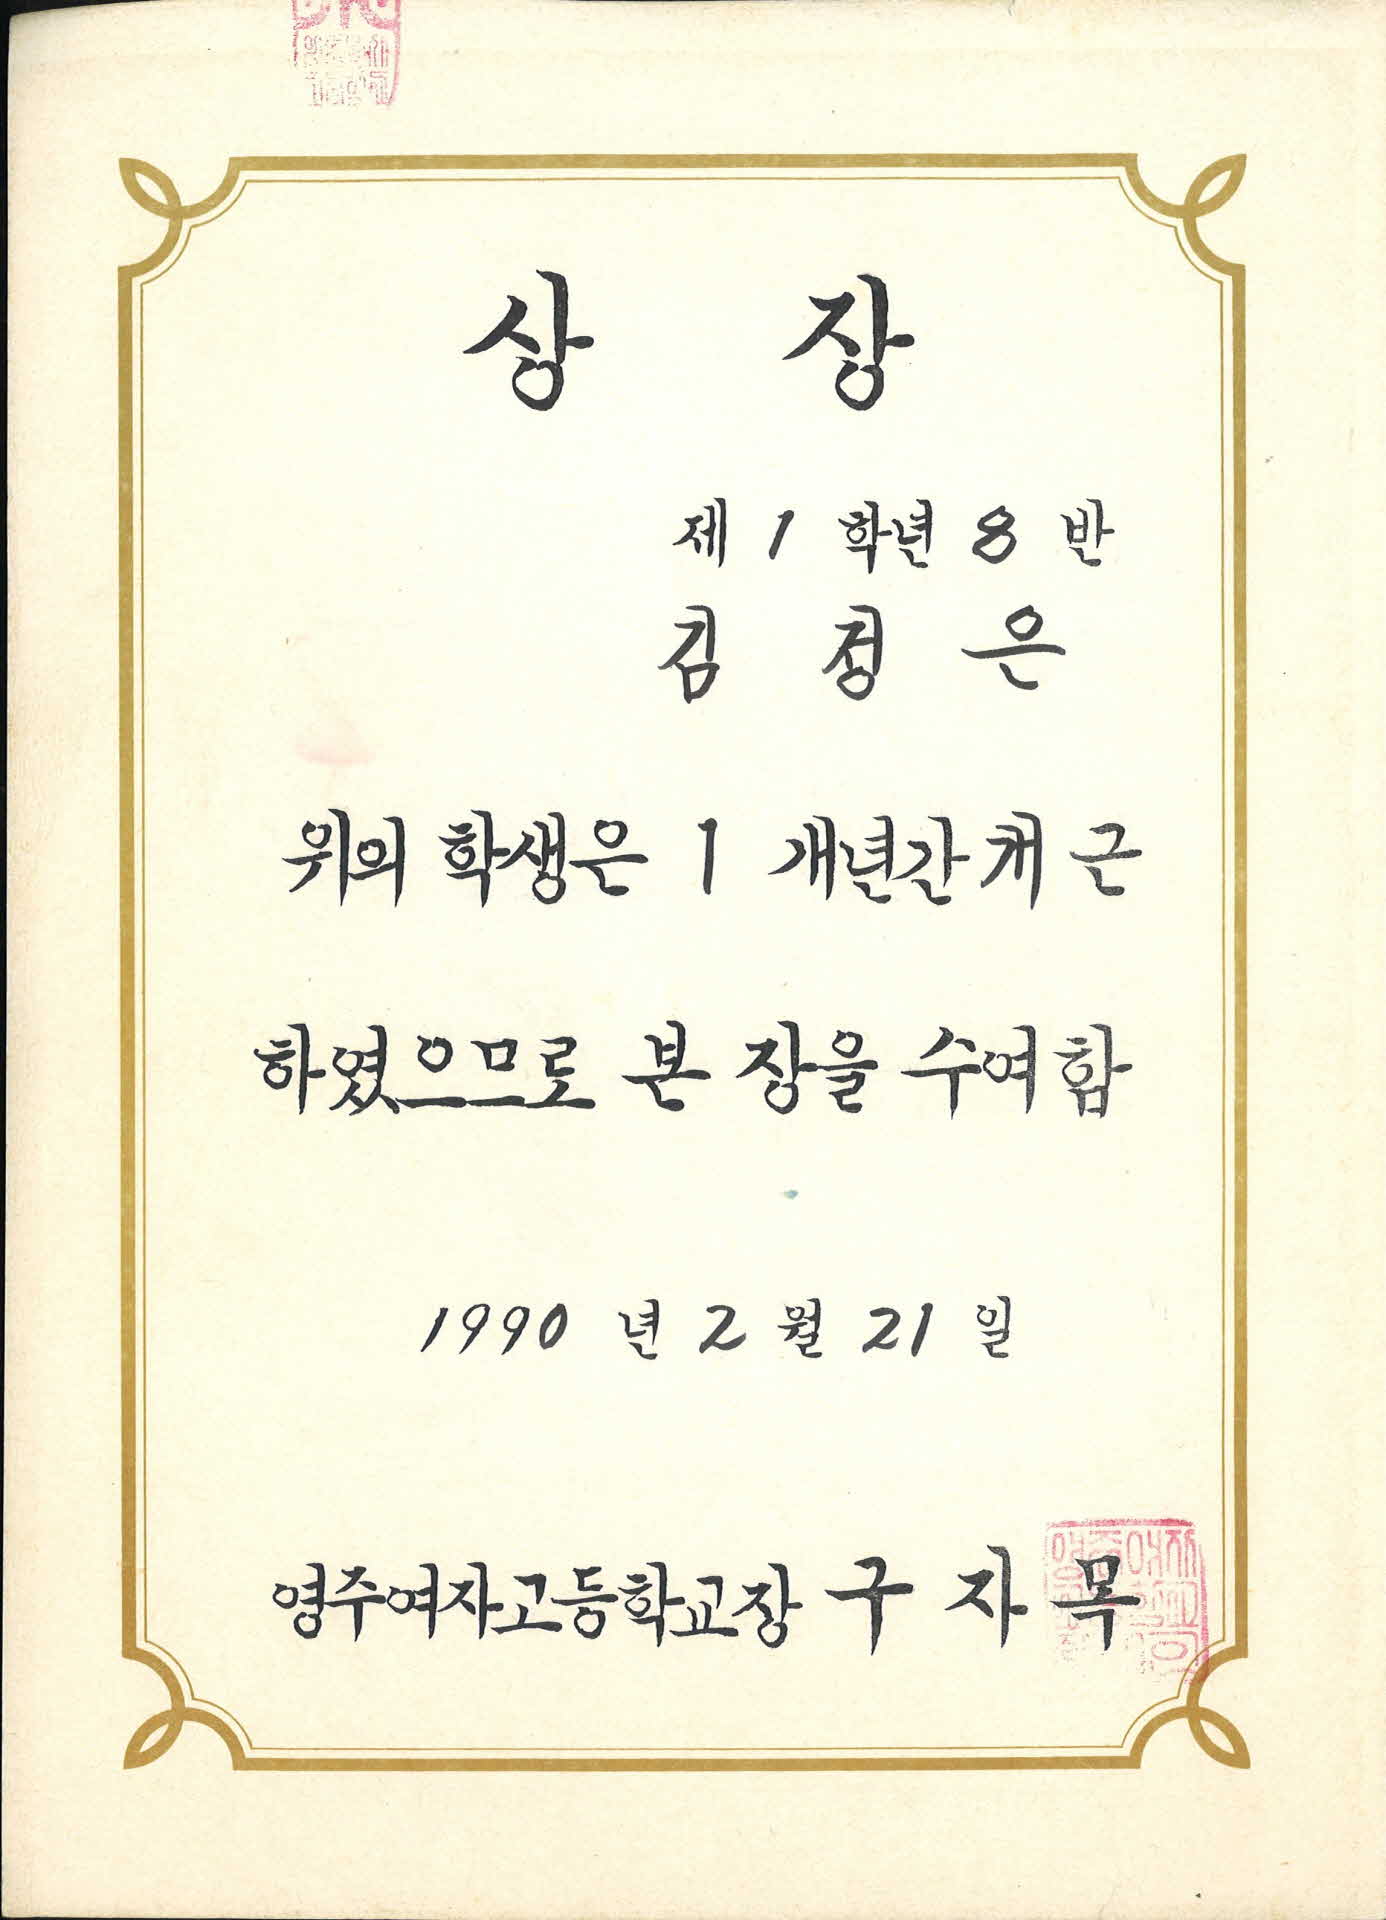 상 장
제 1 학년 8 반
김 정 은
위의 학생은 1 개년간 개근
하였으므로 본 장을 수여함
1990 년 2 월 21 일
영주여자고등학교장 구 자 목